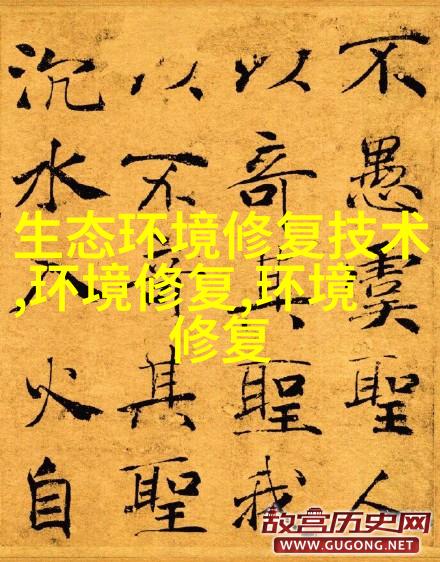 不愚虞聖人
以奇其聖我
以不奇其聖
沉水入火自
生态环境修复技术
,环境修复,环境
修复
故宫历史网
WWW.GUGONG.NET